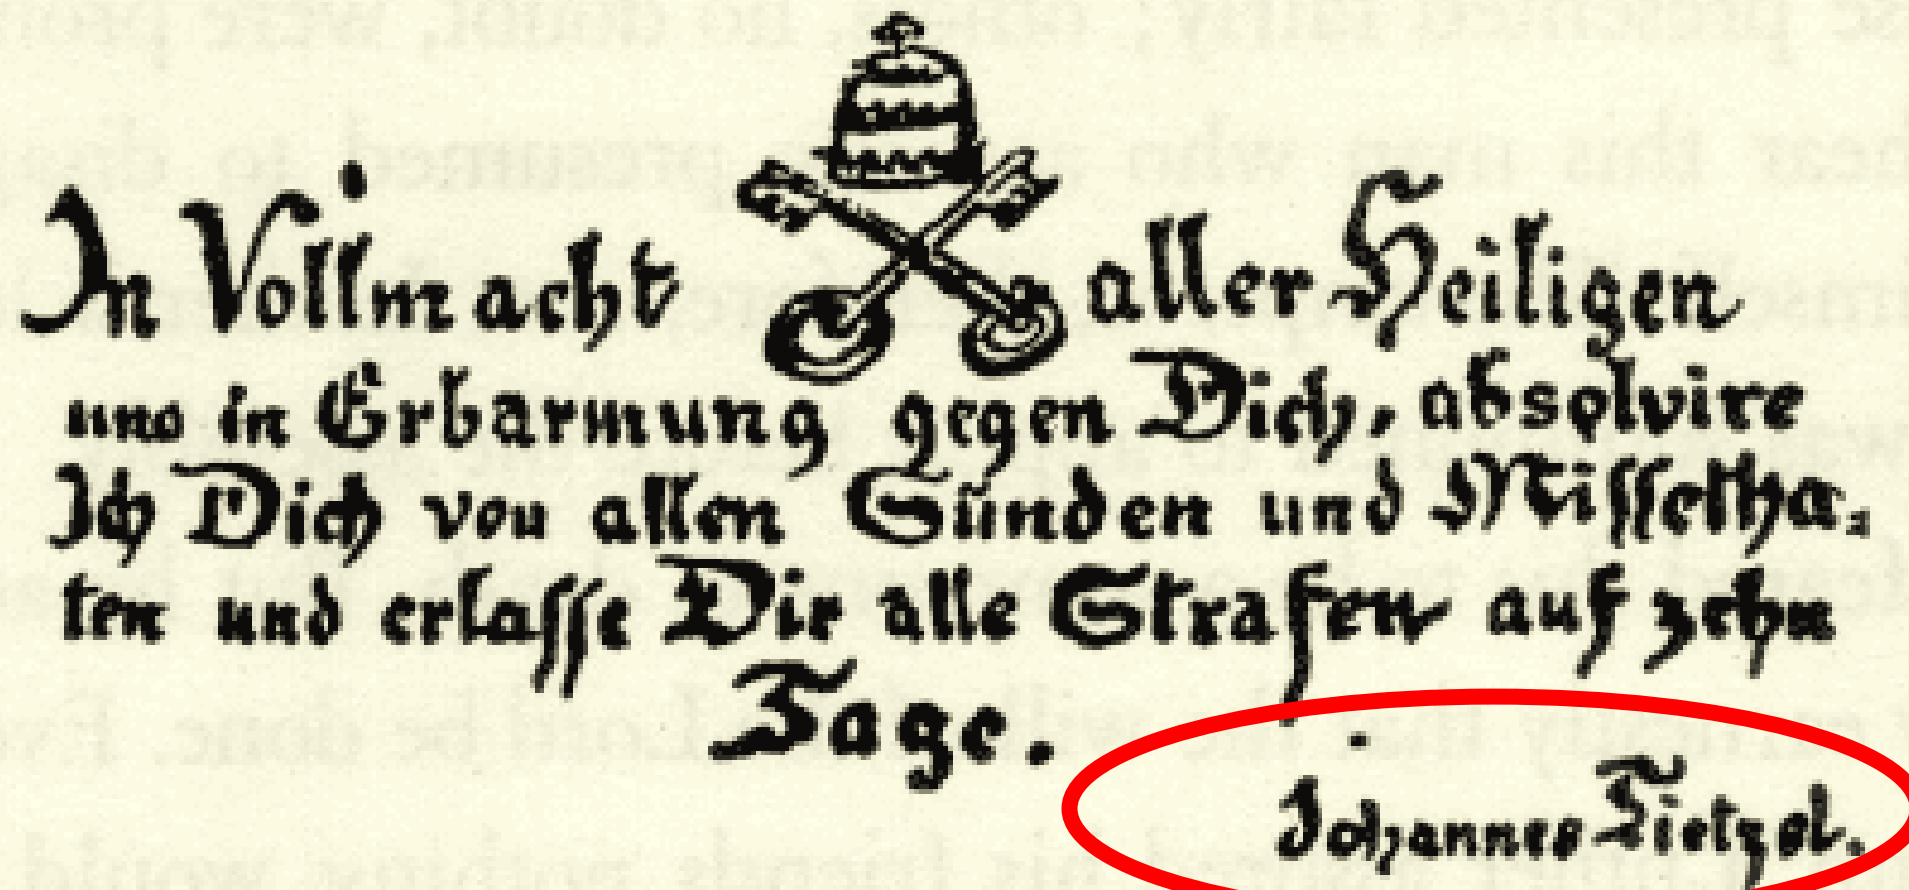 In Vollmacht aller Heiligen
und in Erbarmung gegen Dich, absolvire
Ich Dich von allen Sünden und Missetha⸗
ten und erlasse Dir alle Strafen auf zehn
Tage.
Johannes Tietzel.